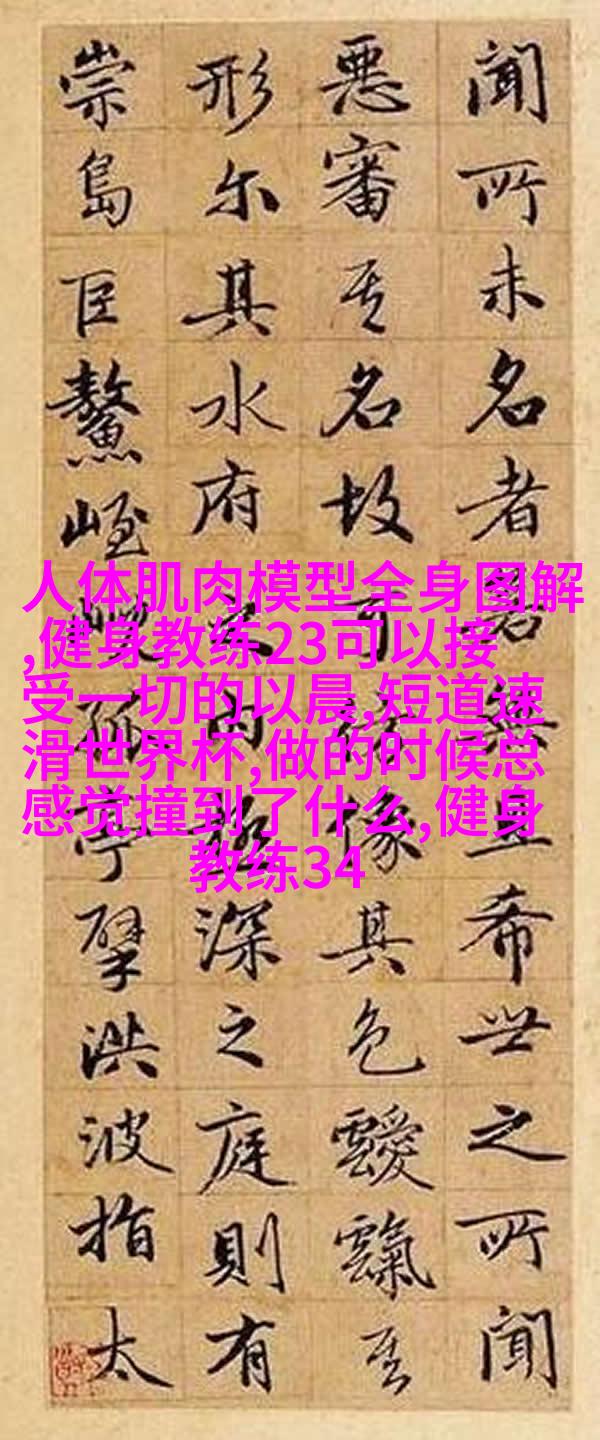 人体肌肉模型全身图解
,健身教练23可以接
受一切的以晨,短道速
滑世界杯,做的时候总
感觉撞到了什么,健身
教练34
聞所未名者若無且希世之所聞
惡審其名故可像其色靉霼其
形尔其水府之内極深之庭則有
崇島巨鰲峌孤亭擘洪波指太